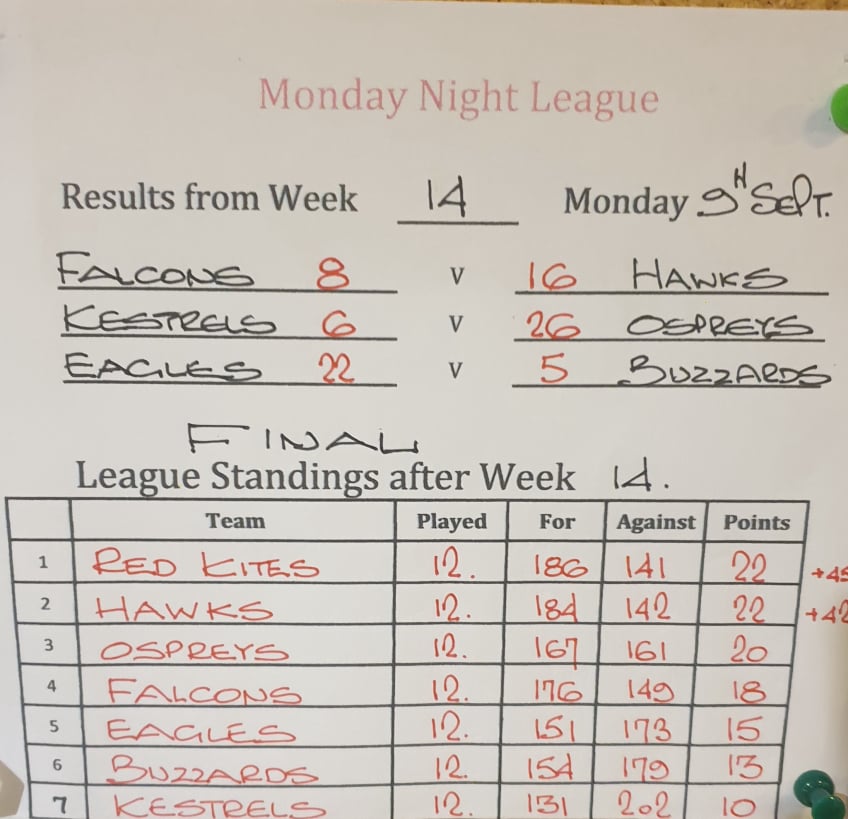 Monday Night League
Results from Week 14 Monday 9TH SEPT.
FALCONS 8 v 16 HAWKS
KESTRELS 6 v 26 OSPREYS
EAGLES 22 v 5 BUZZARDS
FINAL
League Standings after Week 14.
Team Played For Against Points
1 RED KITES 12. 186 141 22 +45
2 HAWKS 12. 184 142 22 +42
3 OSPREYS 12. 167 161 20
4 FALCONS 12. 176 149 18
5 EAGLES 12. 151 173 15
6 BUZZARDS 12. 154 179 13
7 KESTRELS 12. 131 202 10